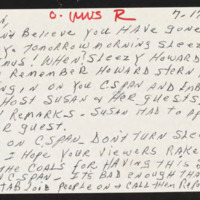 O. IMUS R 7-17
N,
N'T BELIEVE YOU HAVE GONE
Y. TOMORROW MORNING SLEEZ
MUS! WHEN SLEEZY HOWARD
REMEMBER HOWARD STERN
ING IN ON YOU CSPAN AND EM
HOST SUSAN & HER GUESTS
REMARKS - SUSAN HAD TO AP
R GUEST.
ON CSPAN - DON'T TURN SLEE
I HOPE YOUR VIEWERS RAKE
THE COALS FOR HAVING THIS
CSPAN - ITS BAD ENOUGH THA
TAB JOID PEOPLE ON & CALL THEM REPO